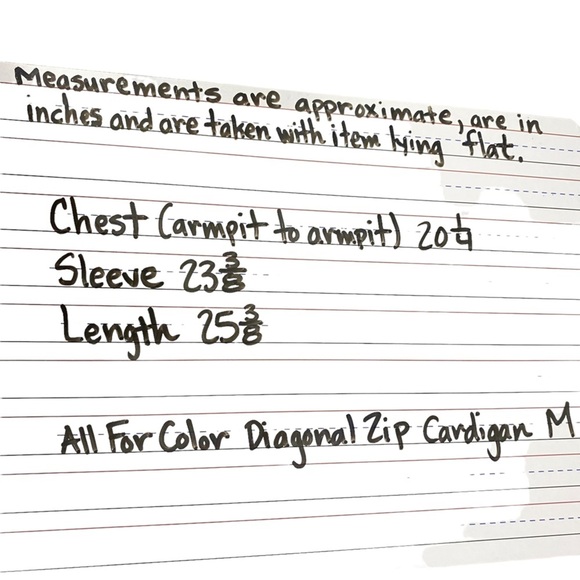 Measurements are approximate, are in
inches and are taken with item lying flat.
Chest (armpit to armpit) 20 1/4
Sleeve 23 3/8
Length 25 3/8
All For Color Diagonal Zip Cardigan M